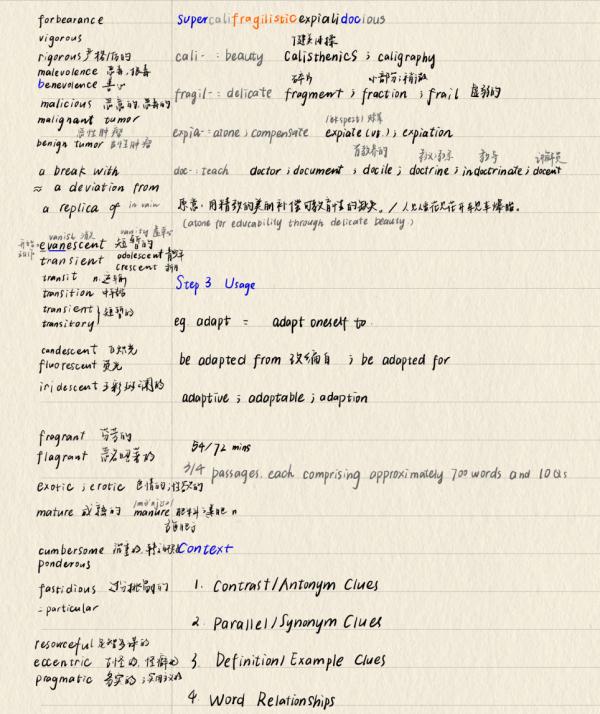 forbearance
vigorous
rigorous 严格的
malevolence 恶毒,狠毒
benevolence 善心
malicious 恶意的,恶毒的
malignant tumor
恶性肿瘤
benign tumor 良性肿瘤
a break with
≈ a deviation from
a replica of in vain
vanish 消失
evanescent 短暂的
transient adolescent 青少年
crescent 新月
transit n.运输
transition 转换
transient } 短暂的
transitory
candescent 白炽光
fluorescent 荧光
iridescent 五彩斑斓的
fragrant 芬芳的
flagrant 恶名昭著的
exotic ; erotic 色情的;性欲的
mature 成熟的 manure 肥料;施肥 n
施肥
cumbersome 沉重的,
ponderous
fastidious 过分挑剔的
= particular
resourceful 足智多谋的
eccentric 古怪的,怪癖的
pragmatic 务实的;实用主义的
Supercalifragilisticexpialidocious
健美体操
cali- : beauty Calisthenics ; caligraphy
碎片 小部分;精致
fragil- : delicate fragment ; fraction ; frail 虚弱的
expia- : atone ; compensate expiate (vs.) ; expiation
doc- : teach doctor ; document ; docile ; doctrine ; indoctrinate ; docent
原意:用精致的美丽补偿可教育性的缺失。/人见人爱花见花开车见车爆胎。
(atone for educability through delicate beauty)
Step 3 Usage
eg. adapt = adapt oneself to
be adapted from 改编自 ; be adapted for
adaptive ; adoptable ; adaption
54/72 mins
3/4 passages, each comprising approximately 700 words and 10 Qs
Context
1. Contrast/Antonym Clues
2. Parallel/Synonym Clues
3. Definition/Example Clues
4. Word Relationships